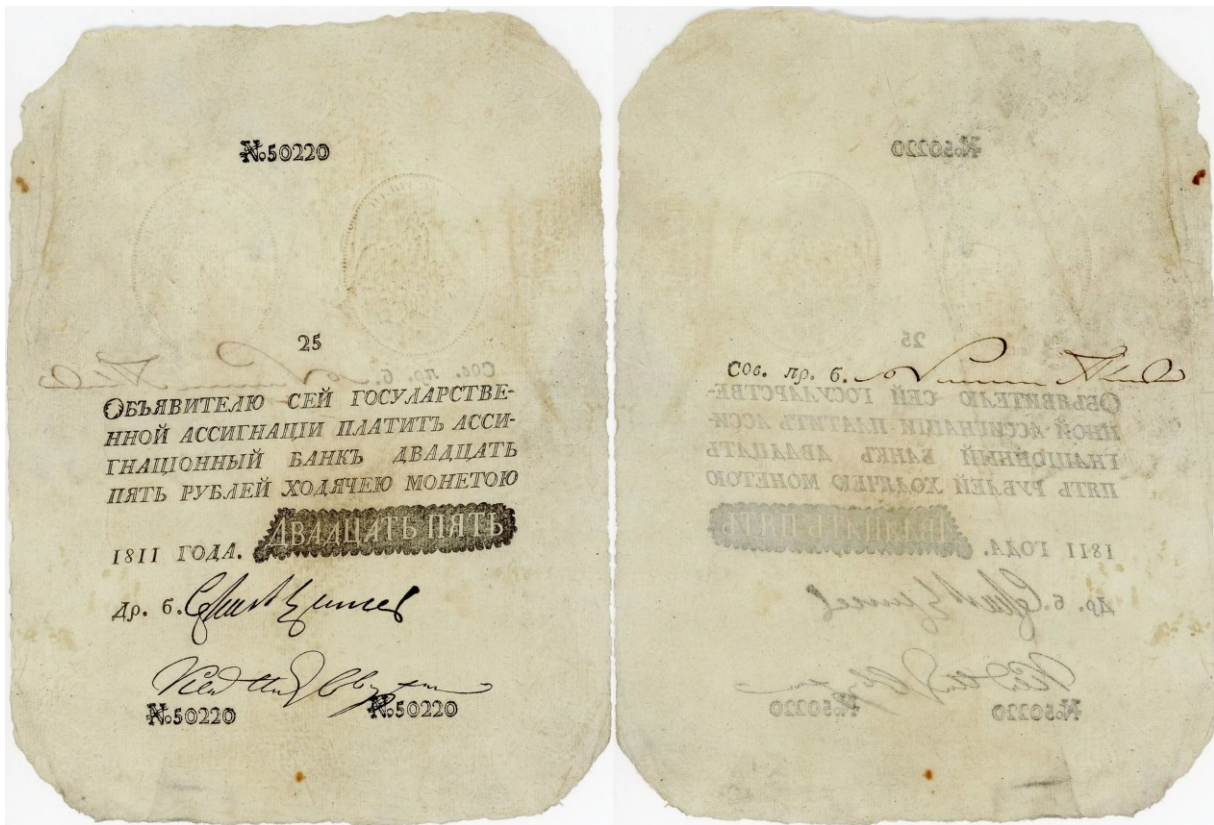 №50220
25
ОБЪЯВИТЕЛЮ СЕЙ ГОСУДАРСТВЕ-
ННОЙ АССИГНАЦІИ ПЛАТИТЪ АССИ-
ГНАЦІОННЫЙ БАНКЪ ДВАДЦАТЬ
ПЯТЬ РУБЛЕЙ ХОДЯЧЕЮ МОНЕТОЮ
ДВАДЦАТЬ ПЯТЬ
1811 ГОДА.
Др. б.
№50220 №50220
Сов. пр. б.